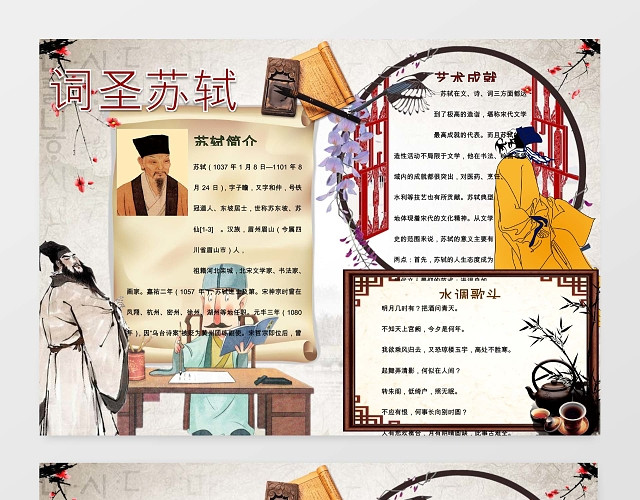 词圣苏轼
苏轼简介
苏轼（1037 年 1 月 8 日—1101 年 8
月 24 日），字子瞻，又字和仲，号铁
冠道人、东坡居士，世称苏东坡、苏
仙[1-3] 。汉族，眉州眉山（今属四
川省眉山市）人，
祖籍河北栾城，北宋文学家、书法家、
画家。嘉祐二年（1057 年），苏轼进士及第。宋神宗时曾在
凤翔、杭州、密州、徐州、湖州等地任职。元丰三年（1080
年），因"乌台诗案"被贬为黄州团练副使。宋哲宗即位后，曾
艺术成就
苏轼在文、诗、词三方面都达
到了极高的造诣，堪称宋代文学
最高成就的代表。而且苏轼
造性活动不局限于文学，他在书法、
域内的成就都很突出，对医药、烹饪、
水利等技艺也有所贡献。苏轼典型
地体现着宋代的文化精神。从文学
史的范围来说，苏轼的意义主要有
两点：首先，苏轼的人生态度成为
水调歌头
明月几时有？把酒问青天。
不知天上宫阙，今夕是何年。
我欲乘风归去，又恐琼楼玉宇，高处不胜寒。
起舞弄清影，何似在人间？
转朱阁，低绮户，照无眠。
不应有恨，何事长向别时圆？
人有悲欢离合，月有阴晴圆缺，此事古难全。